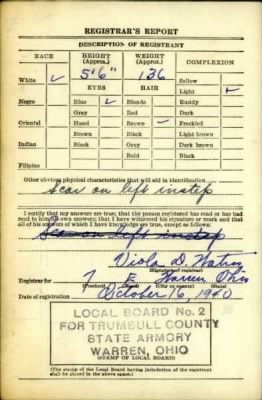 REGISTRAR'S REPORT
DESCRIPTION OF REGISTRANT
RACE HEIGHT (Approx.) WEIGHT (Approx.) COMPLEXION
White ✓ 5'6" 136 Sallow
EYES HAIR Light ✓
Negro Blue ✓ Blonde Ruddy
Gray Red Dark
Oriental Hazel Brown ✓ Freckled
Brown Black Light brown
Indian Black Gray Dark brown
Bald Black
Filipino
Other obvious physical characteristics that will aid in identification
Scar on left instep
I certify that my answers are true; that the person registered has read or has had
read to him his own answers; that I have witnessed his signature or mark and that
all of his answers of which I have knowledge are true, except as follows:
Scar on left instep
Viola D.
(Signature of registrar)
Registrar for 7 E Warren Ohio
(Precinct) (Ward) (City or county) (State)
Date of registration October 16, 1940
LOCAL BOARD No. 2
FOR TRUMBULL COUNTY
STATE ARMORY
WARREN, OHIO
(STAMP OF LOCAL BOARD)
(The stamp of the Local Board having jurisdiction of the registrant
shall be placed in the above space.)